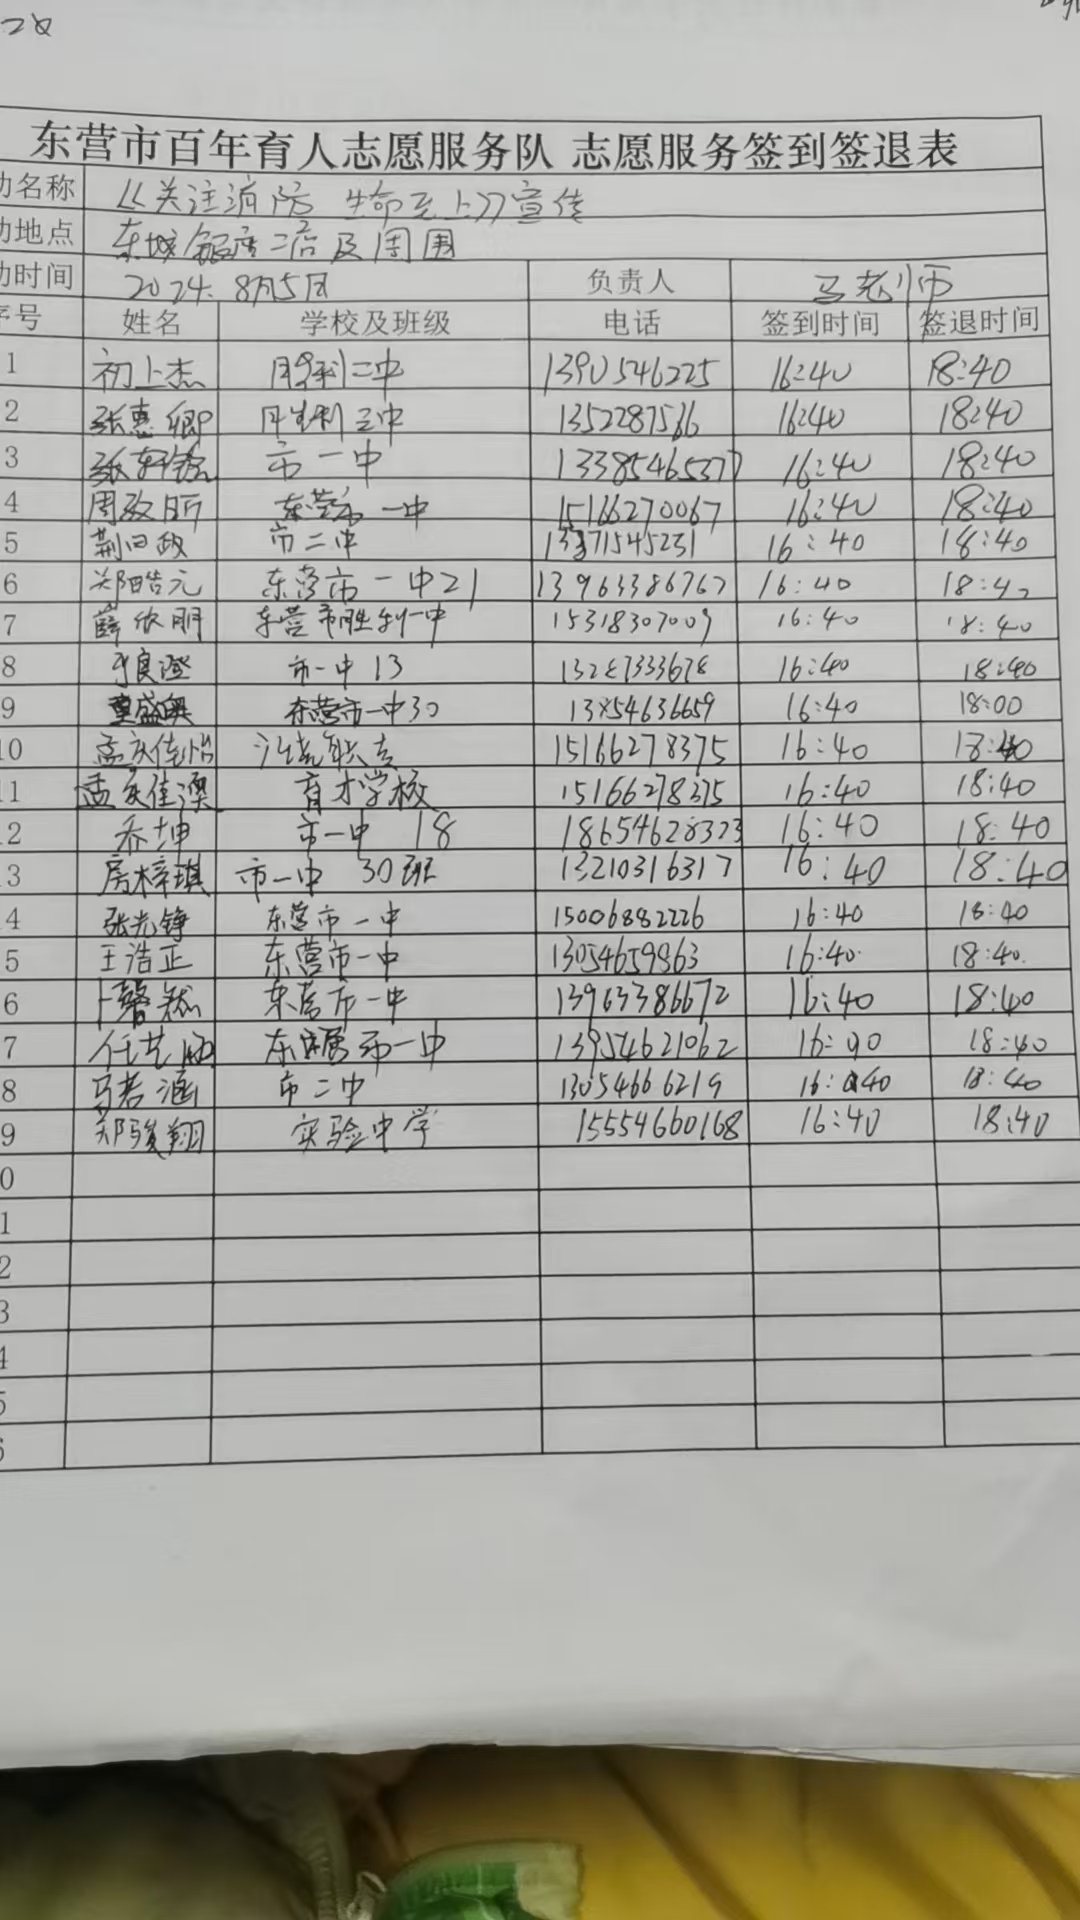 东营市百年育人志愿服务队 志愿服务签到签退表
动名称 《关注消防 生命至上》宣传
动地点 东城银座二店及周围
动时间 2024.8月5日 负责人 马老师
序号 姓名 学校及班级 电话 签到时间 签退时间
1 初上杰 胜利二中 13905546225 16:40 18:40
2 张惠卿 胜利三中 1352287566 16:40 18:40
3 市一中 13385465377 16:40 18:40
4 周政昕 东营市一中 15166270067 16:40 18:40
5 荆日政 市二中 13371545231 16:40 18:40
6 郑皓元 东营市一中21 13963386767 16:40 18:40
7 薛欣朋 东营市胜利一中 15318307009 16:40 18:40
8 于良澄 市一中13 13287333678 16:40 18:40
9 董盛奥 东营市一中30 13854636659 16:40 18:00
10 孟庆佳怡 15166278375 16:40 18:40
11 孟庆佳澳 育才学校 15166278375 16:40 18:40
2 乔坤 市一中 18 18654628323 16:40 18:40
3 房梓琪 市一中 30班 13210316317 16:40 18:40
4 张光铮 东营市一中 15006882226 16:40 18:40
5 王浩正 东营市一中 13054659863 16:40 18:40
6 卜馨越 东营市一中 13963386672 16:40 18:40
7 任艺涵 东营市一中 13954621062 16:40 18:40
8 马若涵 市二中 13054666219 16:40 18:40
9 郑骏翔 实验中学 15554660168 16:40 18:40
0
1
2
3
4
5
6